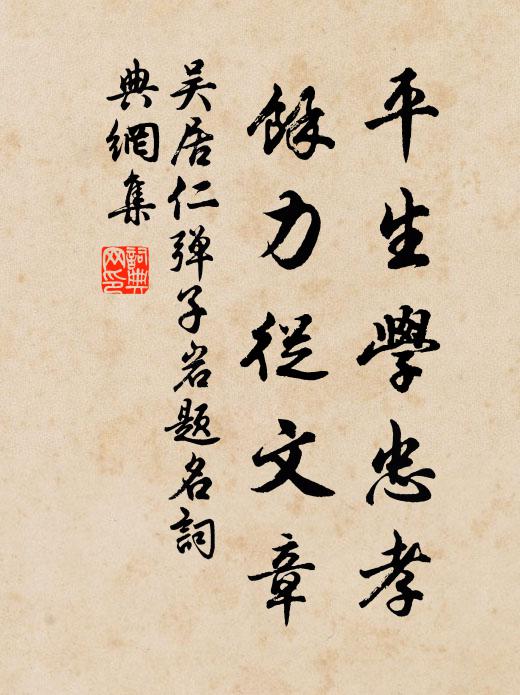 平生學忠孝
餘力從文章
吴居仁弹子岩题名詞
典網集
詞典網印